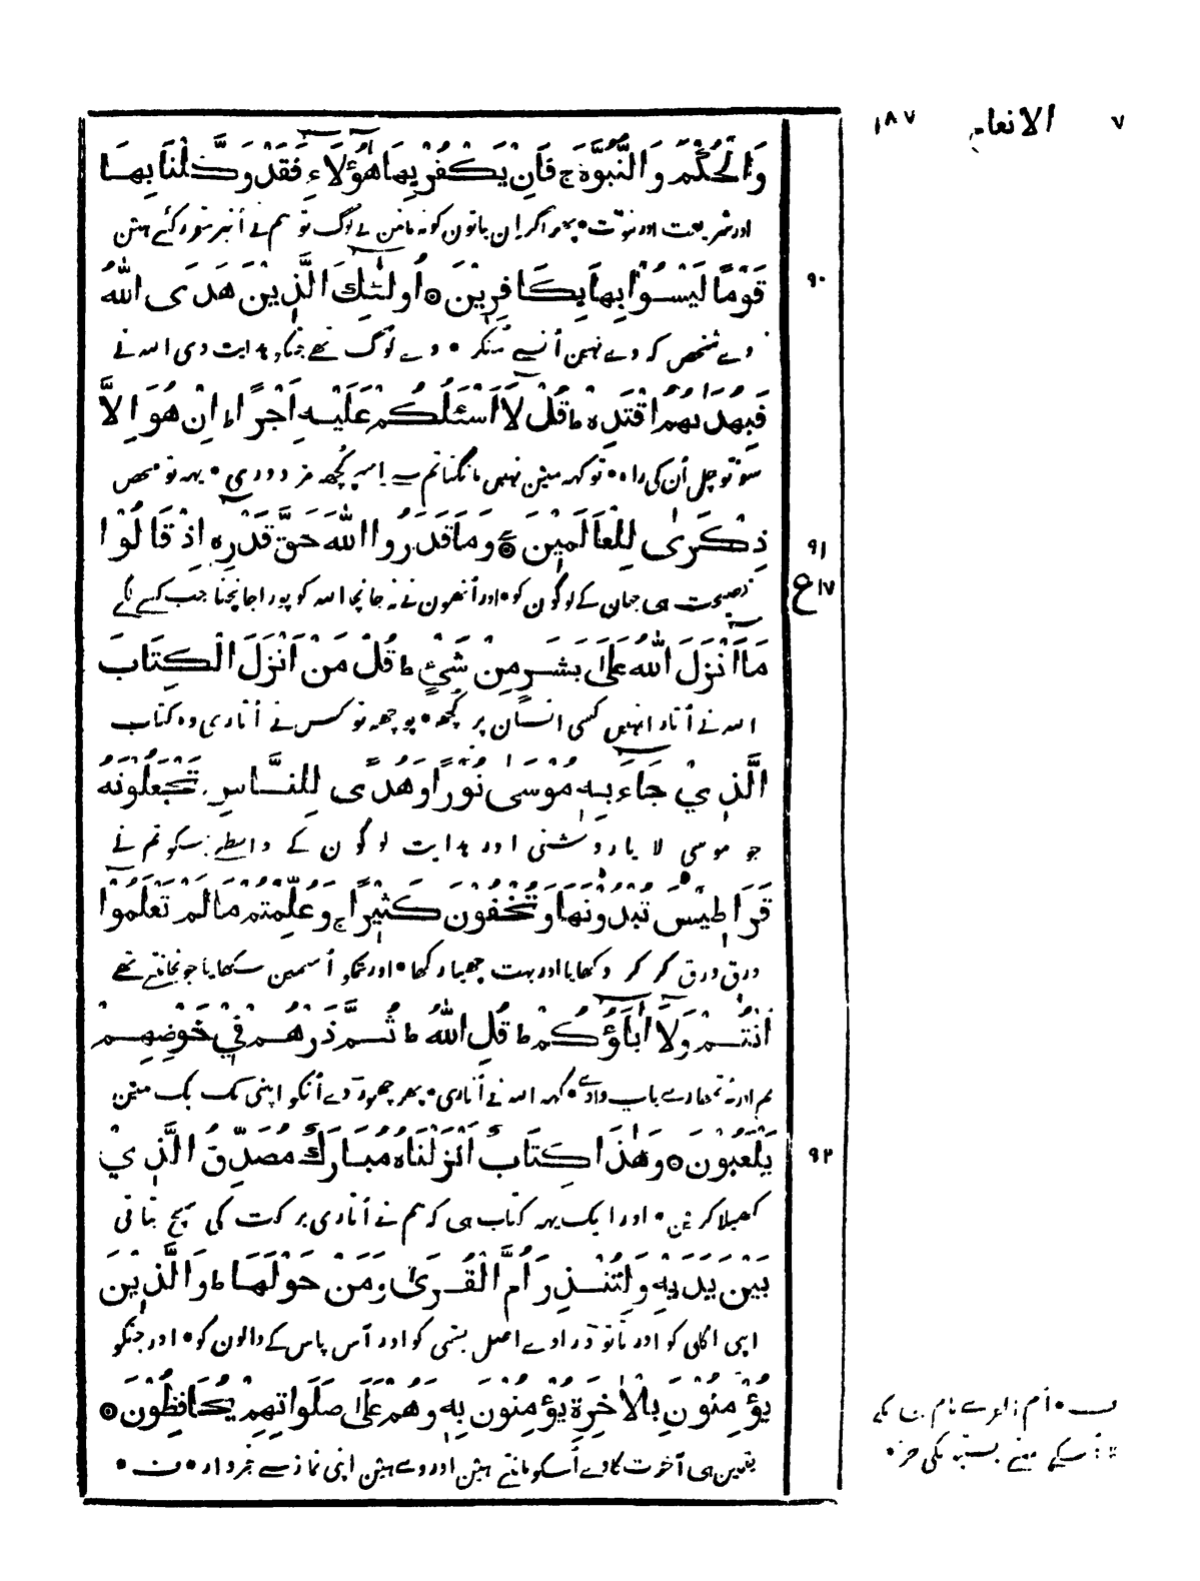 ٧ الانعام ١٨٧
وَالْحُكْمَ وَالنُّبُوَّةَ ج فَاِنْ يَّكْفُرْ بِهَا هٰٓؤُلَآءِ فَقَدْ وَكَّلْنَا بِهَا
اور شریعت اور نبوّت • پھر اگر اِن باتون کو نہ مانین یے لوگ تو ہم نے اُنپر مقرر کئے ہین
٩٠
قَوْمًا لَيْسُوْا بِهَا بِكَافِرِيْنَ ۝ اُولٰٓئِكَ الَّذِيْنَ هَدَى اللهُ
وے شخص کہ وے نہین اُنسے مُنکر • وے لوگ تھے جنکو ہدایت دی اللہ نے
فَبِهُدٰىهُمُ اقْتَدِهْ ط قُلْ لَآ اَسْئَلُكُمْ عَلَيْهِ اَجْرًا ط اِنْ هُوَ اِلَّا
سو تو چل اُن کی راہ • تو کہہ مین نہین مانگتا تم سے اِسپر کُچھ مزدوری • یہہ تو محض
٩١
ذِكْرٰى لِلْعَالَمِيْنَ ۝ وَمَا قَدَرُوا اللهَ حَقَّ قَدْرِهٖ اِذْ قَالُوْا
١٧ ع
نصیحت ہی جہان کے لوگون کو • اور اُنھون نے نہ جانچا اللہ کو پورا جانچنا جب کہنے لگے
مَآ اَنْزَلَ اللهُ عَلٰى بَشَرٍ مِنْ شَيْءٍ ط قُلْ مَنْ اَنْزَلَ الْكِتَابَ
اللہ نے اُتارا نہین کسی انسان پر کُچھ • پوچھہ تو کس نے اُتاری وہ کتاب
الَّذِيْ جَآءَ بِهٖ مُوْسٰى نُوْرًا وَهُدًى لِلنَّاسِ تَجْعَلُوْنَهُ
جو موسی لایا روشنی اور ہدایت لوگون کے واسطے جسکو تم نے
قَرَاطِيْسَ تُبْدُوْنَهَا وَتُخْفُوْنَ كَثِيْرًا ج وَعُلِّمْتُمْ مَا لَمْ تَعْلَمُوْا
ورق ورق کر کر دکھایا اور بہت چھپا رکھا • اور تمکو اُسمین سکھایا جو نجانتے تھے
اَنْتُمْ وَلَآ اٰبَآؤُكُمْ ط قُلِ اللهُ ط ثُمَّ ذَرْهُمْ فِيْ خَوْضِهِمْ
تم اور نہ تمھارے باپ دادے • کہہ اللہ نے اُتاری • پھر چھوڑ دے اُنکو اپنی بک بک مین
٩٢
يَلْعَبُوْنَ ۝ وَهٰذَا كِتَابٌ اَنْزَلْنَاهُ مُبَارَكٌ مُصَدِّقُ الَّذِيْ
کھیلا کرین • اور ایک یہہ کتاب ہی کہ ہم نے اُتاری برکت کی سچ بتاتی
بَيْنَ يَدَيْهِ وَلِتُنْذِرَ اُمَّ الْقُرٰى وَمَنْ حَوْلَهَا ط وَالَّذِيْنَ
اپنی اگلی کو اور تا تو ڈراوے اصل بستی کو اور آس پاس کے والون کو • اور جنکو
يُؤْمِنُوْنَ بِالْاٰخِرَةِ يُؤْمِنُوْنَ بِهٖ وَهُمْ عَلٰى صَلَوَاتِهِمْ يُحَافِظُوْنَ ۝
یقین ہی آخرت کا وے اُسکو مانتے ہین اور وے ہین اپنی نماز سے خبردار • ف •
ف • اُم القرے نام